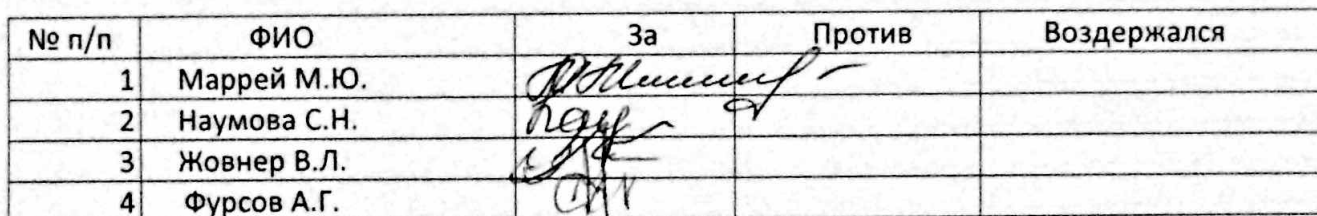 № п/п ФИО За Против Воздержался
1 Маррей М.Ю.
2 Наумова С.Н.
3 Жовнер В.Л.
4 Фурсов А.Г.